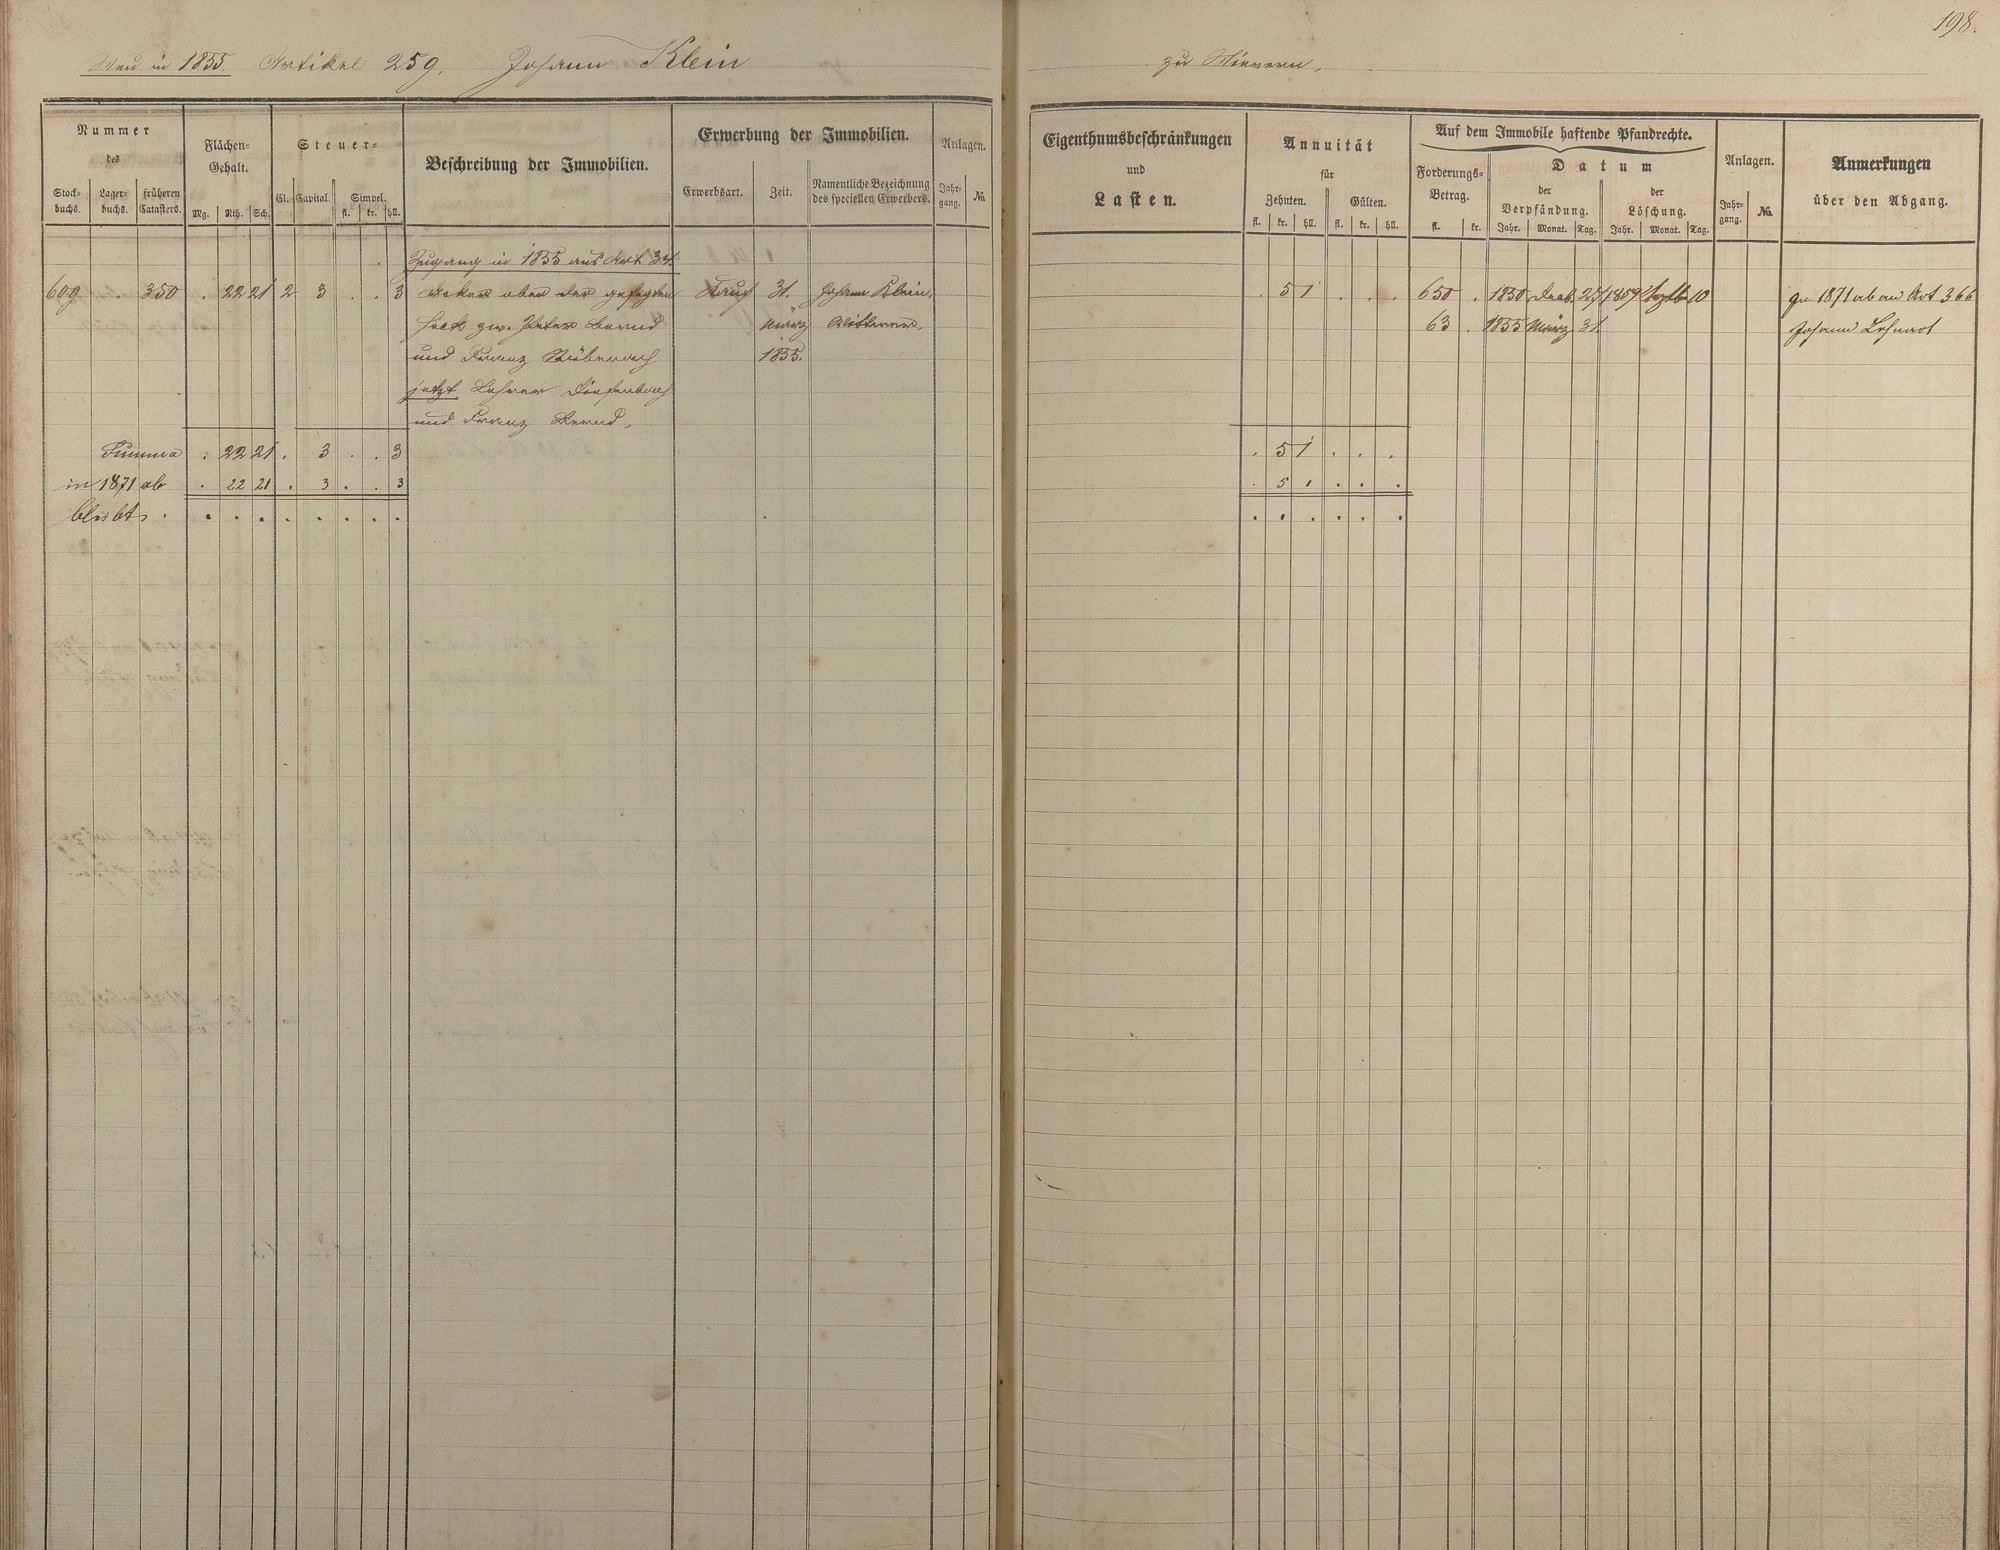 198.
Neu in 1855. Artikel 259. Johann Klein
zu Miewern.
Nummer
des
Stock-
buchs.
Lager-
buchs.
früheren
Catasters.
Flächen-
Gehalt.
Mg. Rth. Sch.
Steuer-
Cl. Capital. Simpel.
fl. kr. hll.
Beschreibung der Immobilien.
Erwerbung der Immobilien.
Erwerbsart. Zeit. Namentliche Bezeichnung
des speciellen Erwerbers.
Anlagen.
Jahr-
gang. No.
Zugang in 1855 aus Art 34.
609 . 350 . 22 21 2 3 . . 3 Acker ober der
Tausch 31. Johann Klein,
Heck zw. Peter Bernd März Wittwer.
und Franz 1855.
jetzt Lehrer Diefenbach
und Franz Bernd.
Summa . 22 21 . 3 . . 3
in 1871 ab . 22 21 . 3 . . 3
bleibt . . . . . . . . .
Eigenthumsbeschränkungen
und
Lasten.
Annuität
für
Zehnten. Gülten.
fl. kr. hll. fl. kr. hll.
Auf dem Immobile haftende Pfandrechte.
Forderungs-
Betrag.
fl. kr.
Datum
der
Verpfändung.
Jahr. Monat. Tag.
der
Löschung.
Jahr. Monat. Tag.
Anlagen.
Jahr-
gang. No.
Anmerkungen
über den Abgang.
. 5 1 . . . 650 . 1850 27 1859 10 1871 ab an Art 366
63 . 1855 März 31 Johann Lehnart
. 5 1 . . .
. 5 1 . . .
. . . . . .